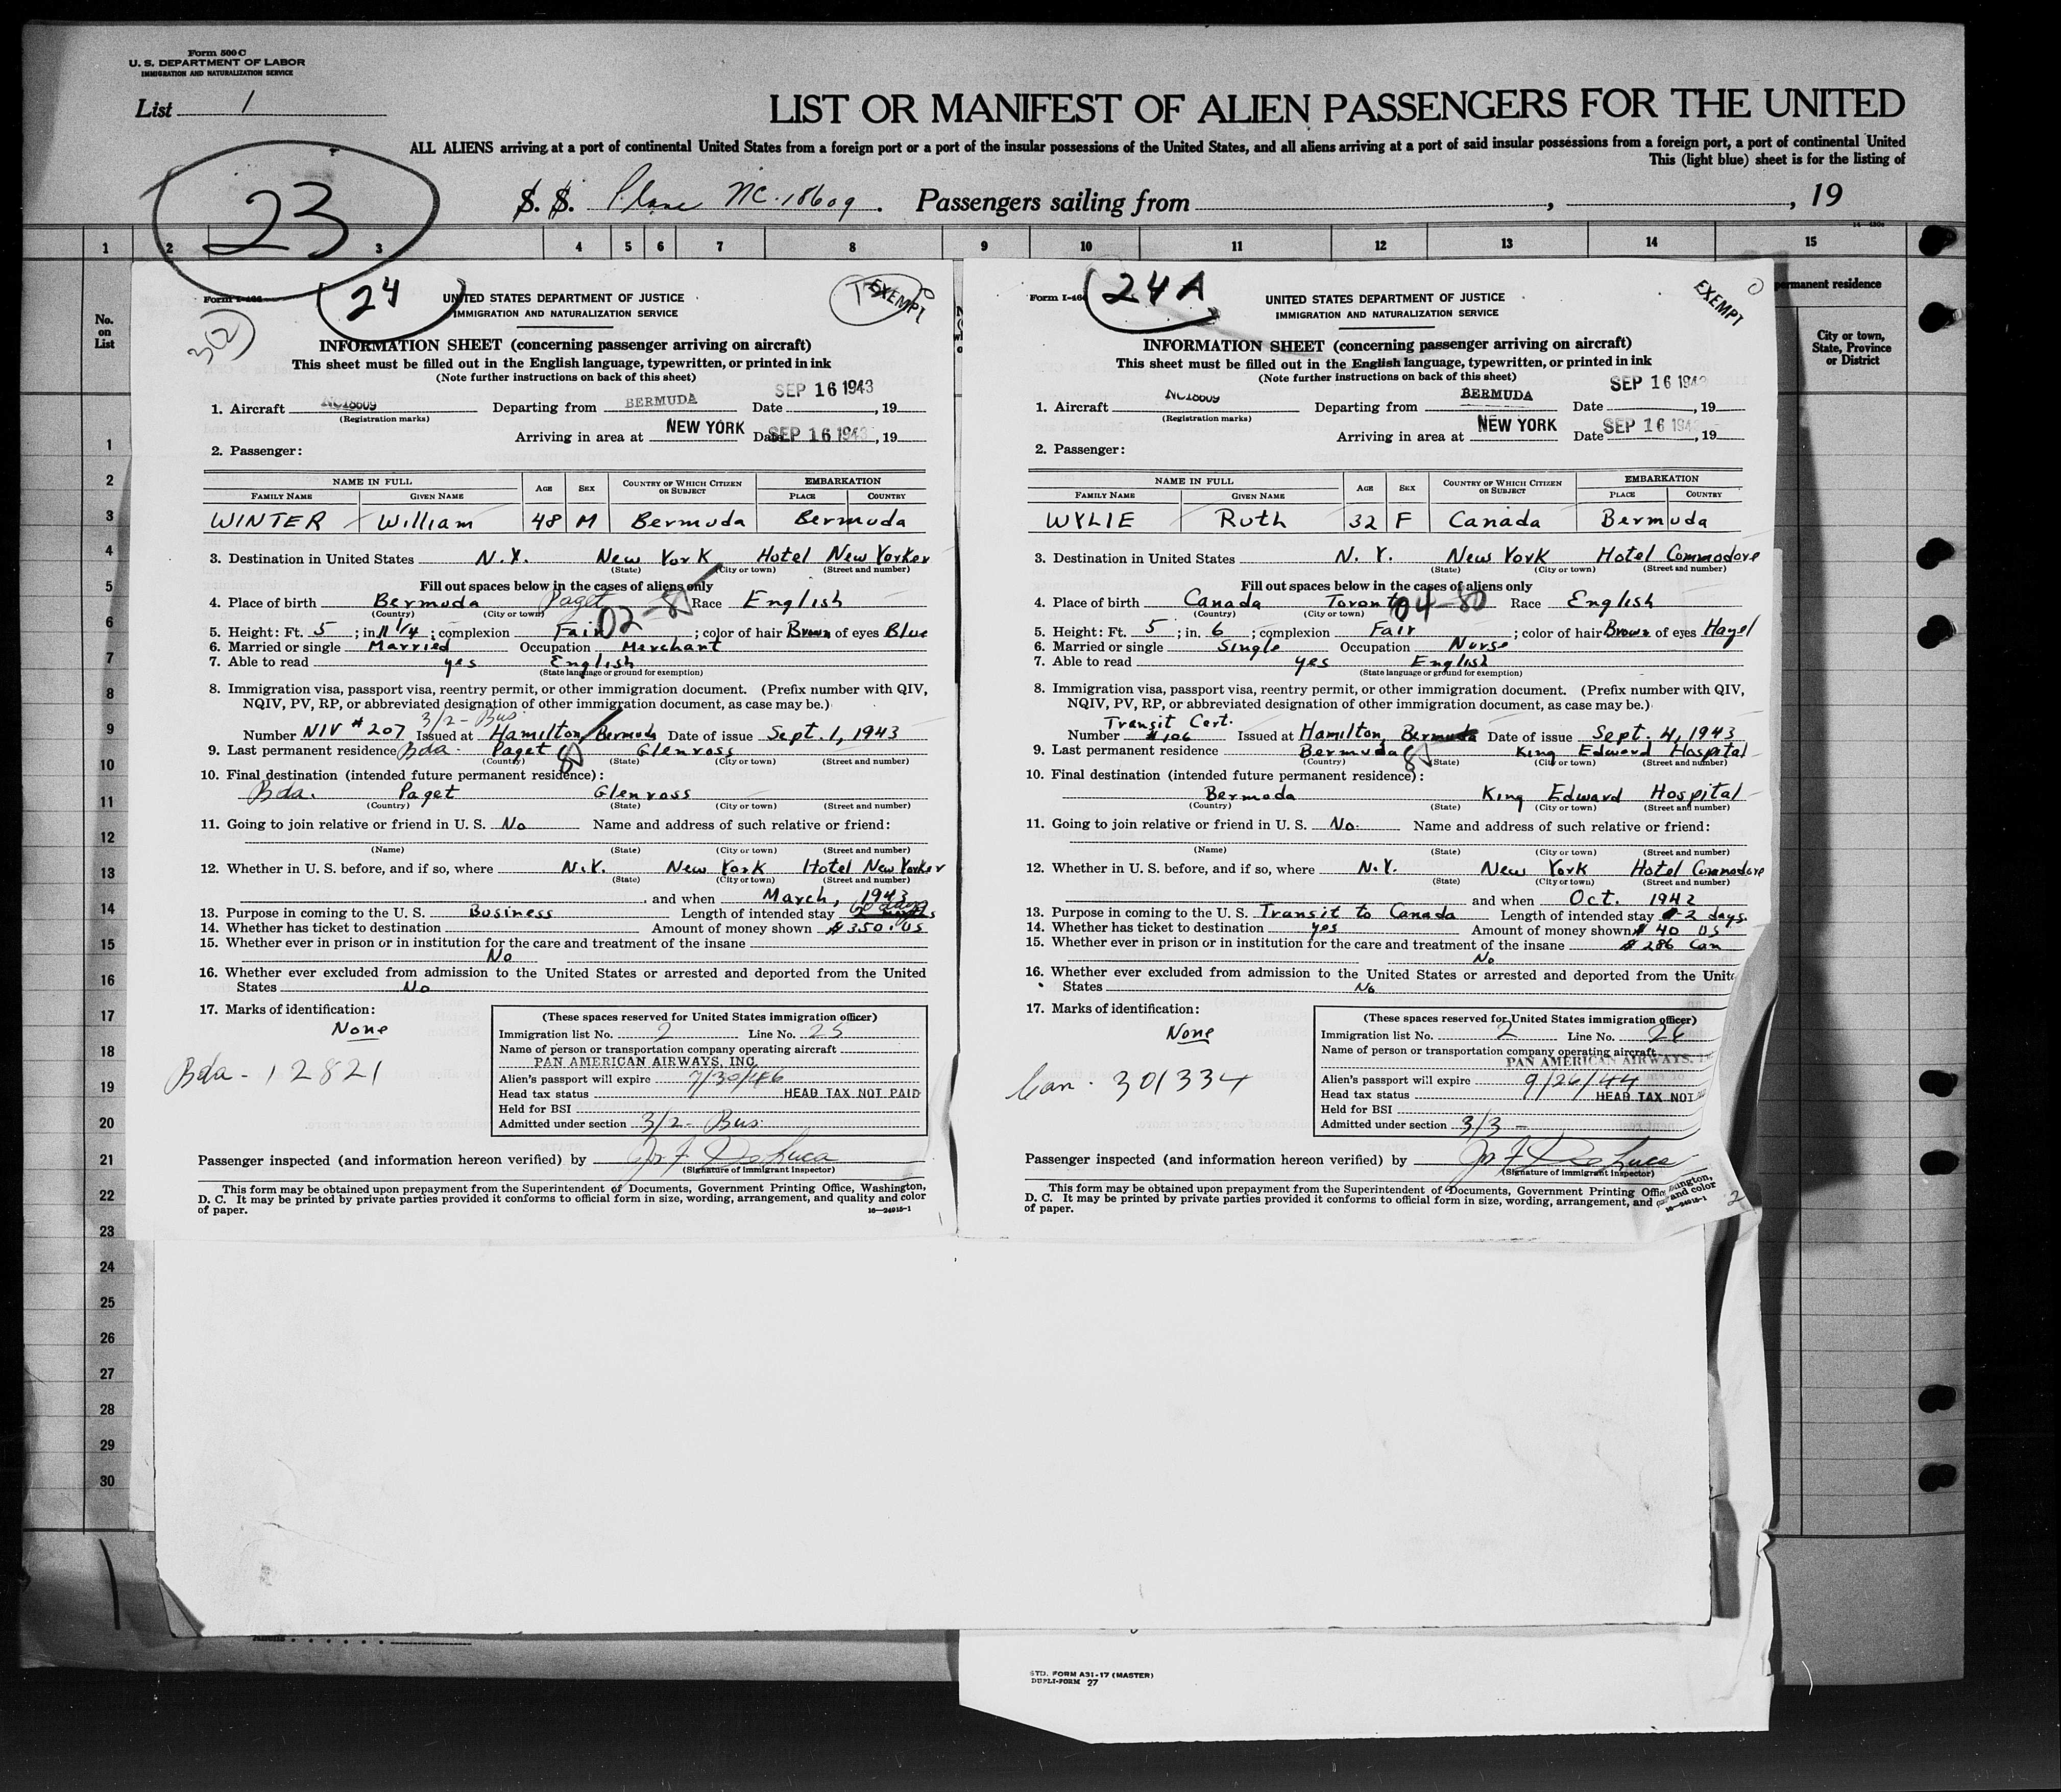 Form 500 C
U. S. DEPARTMENT OF LABOR
IMMIGRATION AND NATURALIZATION SERVICE
List 1
LIST OR MANIFEST OF ALIEN PASSENGERS FOR THE UNITED
ALL ALIENS arriving at a port of continental United States from a foreign port or a port of the insular possessions of the United States, and all aliens arriving at a port of said insular possessions from a foreign port, a port of continental United
This (light blue) sheet is for the listing of
23
S. S. Plane NC-18609. Passengers sailing from , , 19
1 2 3 4 5 6 7 8 9 10 11 12 13 14 15
No. on List
permanent residence
City or town, State, Province or District
1
2
3
4
5
6
7
8
9
10
11
12
13
14
15
16
17
18
19
20
21
22
23
24
25
26
27
28
29
30
24
EXEMPT
UNITED STATES DEPARTMENT OF JUSTICE
IMMIGRATION AND NATURALIZATION SERVICE
INFORMATION SHEET (concerning passenger arriving on aircraft)
This sheet must be filled out in the English language, typewritten, or printed in ink
(Note further instructions on back of this sheet)
1. Aircraft NC18609 Departing from BERMUDA Date SEP 16 1943, 19
(Registration marks)
Arriving in area at NEW YORK Date SEP 16 1943, 19
2. Passenger:
NAME IN FULL AGE SEX COUNTRY OF WHICH CITIZEN OR SUBJECT EMBARKATION
FAMILY NAME GIVEN NAME PLACE COUNTRY
WINTER William 48 M Bermuda Bermuda
3. Destination in United States N.Y. New York Hotel New Yorker
(State) (City or town) (Street and number)
Fill out spaces below in the cases of aliens only
4. Place of birth Bermuda Paget Race English
(Country) (City or town)
5. Height: Ft. 5; in. 11 1/4; complexion Fair; color of hair Brown of eyes Blue
6. Married or single Married Occupation Merchant
7. Able to read yes English
(State language or ground for exemption)
8. Immigration visa, passport visa, reentry permit, or other immigration document. (Prefix number with QIV,
NQIV, PV, RP, or abbreviated designation of other immigration document, as case may be.)
3/2 - Bus.
Number NIV # 207 Issued at Hamilton, Bermuda Date of issue Sept. 1, 1943
9. Last permanent residence Bda. Paget Glenross
(Country) (State) (Street and number)
10. Final destination (intended future permanent residence):
Bda. Paget Glenross
(Country) (State) (City or town) (Street and number)
11. Going to join relative or friend in U. S. No Name and address of such relative or friend:
(Name) (State) (City or town) (Street and number)
12. Whether in U. S. before, and if so, where N.Y. New York Hotel New Yorker
(State) (City or town) (Street and number)
and when March, 1943
13. Purpose in coming to the U. S. Business Length of intended stay 60 days
14. Whether has ticket to destination Amount of money shown $350. US
15. Whether ever in prison or in institution for the care and treatment of the insane
No
16. Whether ever excluded from admission to the United States or arrested and deported from the United
States No
17. Marks of identification:
None
Bda - 12821
(These spaces reserved for United States immigration officer)
Immigration list No. 2 Line No. 25
Name of person or transportation company operating aircraft
PAN AMERICAN AIRWAYS, INC
Alien's passport will expire 7/30/46
Head tax status HEAD TAX NOT PAID
Held for BSI
Admitted under section 3/2 - Bus.
Passenger inspected (and information hereon verified) by
(Signature of immigrant inspector)
This form may be obtained upon prepayment from the Superintendent of Documents, Government Printing Office, Washington,
D. C. It may be printed by private parties provided it conforms to official form in size, wording, arrangement, and quality and color
of paper. 16—24915-1
24A
EXEMPT
UNITED STATES DEPARTMENT OF JUSTICE
IMMIGRATION AND NATURALIZATION SERVICE
INFORMATION SHEET (concerning passenger arriving on aircraft)
This sheet must be filled out in the English language, typewritten, or printed in ink
(Note further instructions on back of this sheet)
1. Aircraft NC18609 Departing from BERMUDA Date SEP 16 1943, 19
(Registration marks)
Arriving in area at NEW YORK Date SEP 16 1943, 19
2. Passenger:
NAME IN FULL AGE SEX COUNTRY OF WHICH CITIZEN OR SUBJECT EMBARKATION
FAMILY NAME GIVEN NAME PLACE COUNTRY
WYLIE Ruth 32 F Canada Bermuda
3. Destination in United States N.Y. New York Hotel Commodore
(State) (City or town) (Street and number)
Fill out spaces below in the cases of aliens only
4. Place of birth Canada Toronto 04-80 Race English
(Country) (City or town)
5. Height: Ft. 5; in. 6; complexion Fair; color of hair Brown of eyes Hazel
6. Married or single Single Occupation Nurse
7. Able to read yes English
(State language or ground for exemption)
8. Immigration visa, passport visa, reentry permit, or other immigration document. (Prefix number with QIV,
NQIV, PV, RP, or abbreviated designation of other immigration document, as case may be.)
Transit Cert.
Number # 106 Issued at Hamilton, Bermuda Date of issue Sept. 4, 1943
9. Last permanent residence Bermuda King Edward Hospital
(Country) (State) (City or town) (Street and number)
10. Final destination (intended future permanent residence):
Bermuda King Edward Hospital
(Country) (State) (City or town) (Street and number)
11. Going to join relative or friend in U. S. No. Name and address of such relative or friend:
(Name) (State) (City or town) (Street and number)
12. Whether in U. S. before, and if so, where N.Y. New York Hotel Commodore
(State) (City or town) (Street and number)
and when Oct. 1942
13. Purpose in coming to the U. S. Transit to Canada Length of intended stay 2 days.
14. Whether has ticket to destination yes Amount of money shown $ 40 US
15. Whether ever in prison or in institution for the care and treatment of the insane $ 286 Can
No
16. Whether ever excluded from admission to the United States or arrested and deported from the Unit
States No
17. Marks of identification:
None
Can. 301334
(These spaces reserved for United States immigration officer)
Immigration list No. 2 Line No. 26
Name of person or transportation company operating aircraft
PAN AMERICAN AIRWAYS,
Alien's passport will expire 9/26/44
Head tax status HEAD TAX NOT
Held for BSI
Admitted under section 3/3 -
Passenger inspected (and information hereon verified) by
(Signature of immigrant inspector)
This form may be obtained upon prepayment from the Superintendent of Documents, Government Printing Office, Washington,
D. C. It may be printed by private parties provided it conforms to official form in size, wording, arrangement, and quality and color
of paper. 16—24915-1
2
STD. FORM A31-17 (MASTER)
DUPLI-FORM 27